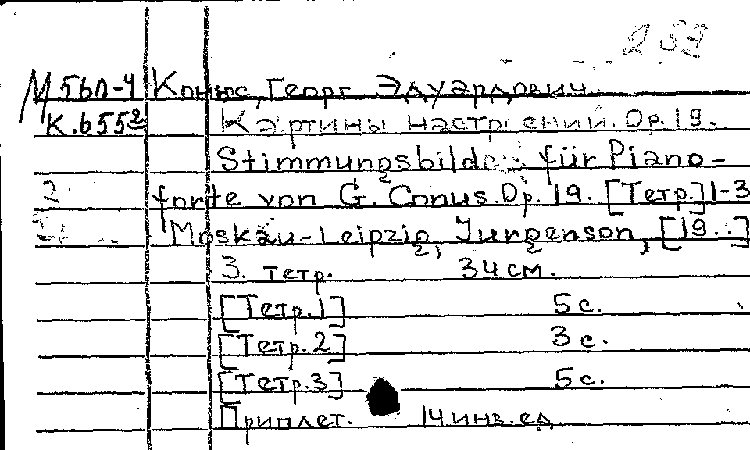 253
М 560-4 Конюс, Георг Эдуардович.
К.655² Картины настроений. Op. 19.
Stimmungsbilder für Piano-
forte von G. Conus. Op. 19. [Тетр.] 1-3
Moskau-Leipzig, Jurgenson, [19..]
3. тетр. 34 см.
[Тетр. 1] 5 с.
[Тетр. 2] 3 с.
[Тетр. 3] 5 с.
Приплет. 14 инв. ед.